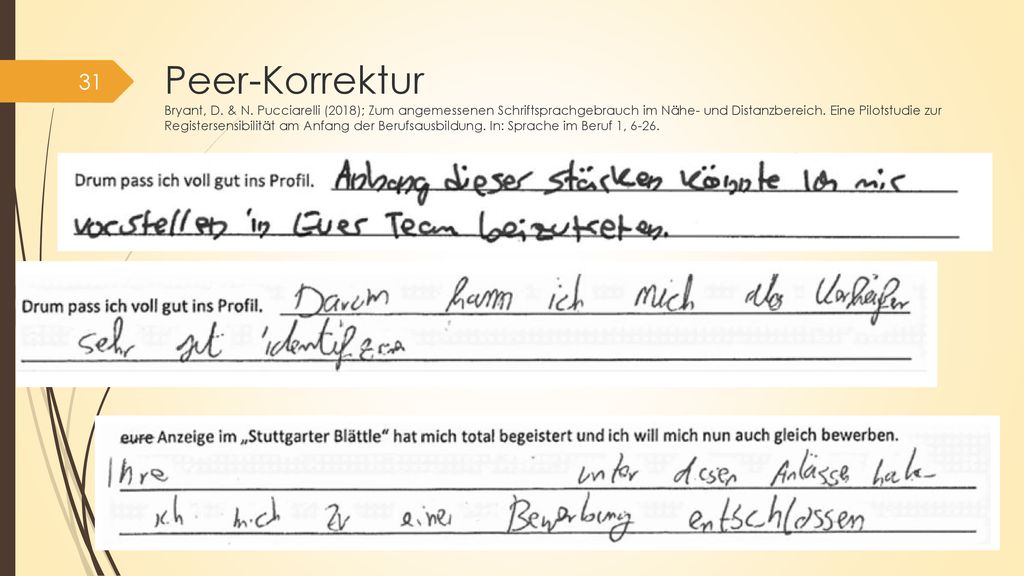 31
Peer-Korrektur
Bryant, D. & N. Pucciarelli (2018); Zum angemessenen Schriftsprachgebrauch im Nähe- und Distanzbereich. Eine Pilotstudie zur
Registersensibilität am Anfang der Berufsausbildung. In: Sprache im Beruf 1, 6-26.
Drum pass ich voll gut ins Profil. Anhang dieser stärken könnte Ich mir
vorstellen in Euer Team beizutreten.
Drum pass ich voll gut ins Profil. Darum kann ich mich als Verkäufer
sehr gut
eure Anzeige im „Stuttgarter Blättle“ hat mich total begeistert und ich will mich nun auch gleich bewerben.
Ihre unter diesen Anlässe habe
ich mich zu einer Bewerbung entschlossen